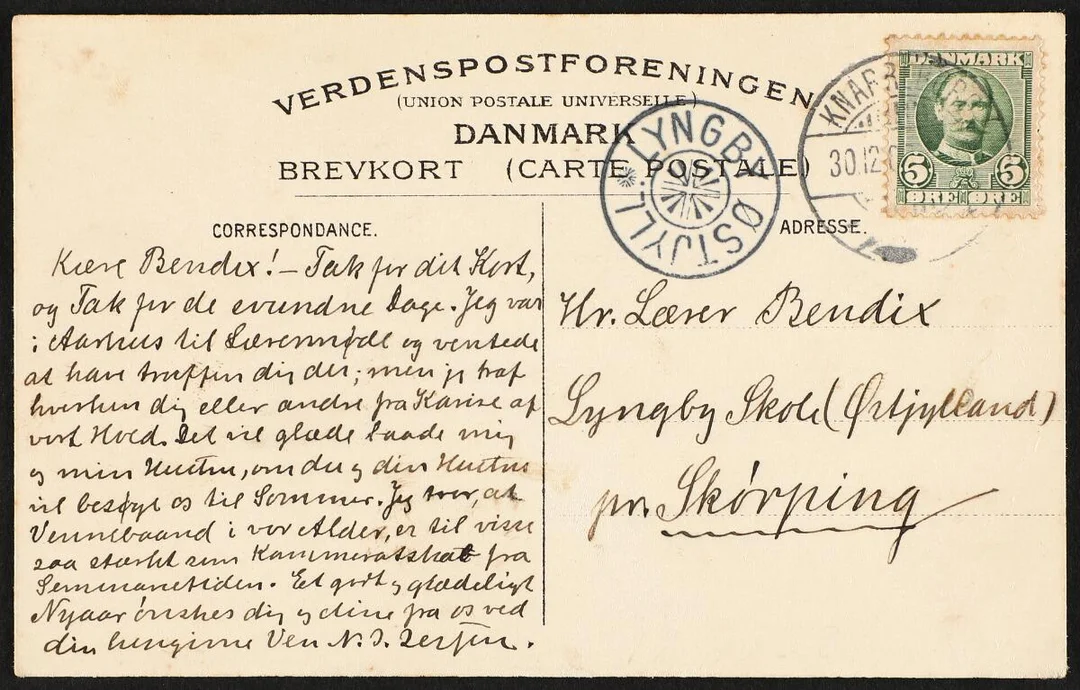 VERDENSPOSTFORENINGEN
(UNION POSTALE UNIVERSELLE)
DANMARK
BREVKORT (CARTE POSTALE)
LYNGBY ØSTJYLL.
KNARB
30.12.
DANMARK
5 5
ØRE ØRE
CORRESPONDANCE.
Kære Bendix! – Tak for dit Kort,
og Tak for de svundne Dage. Jeg var
i Aarhus til Lærermøde og ventede
at have truffen dig der; men jeg traf
hverken dig eller andre fra Karise af
vort Hold. Det vil glæde baade mig
og min Hustru, om du og din Hustru
vil besøge os til Sommer. Jeg tror, at
Vennebaand i vor Alder, er til visse
saa stærkt som Kammeratskab fra
Seminarietiden. Et godt og glædeligt
Nyaar ønskes dig og dine fra os ved
din hengivne Ven N. J.
ADRESSE.
Hr. Lærer Bendix
Lyngby Skole (Østjylland)
pr. Skörping